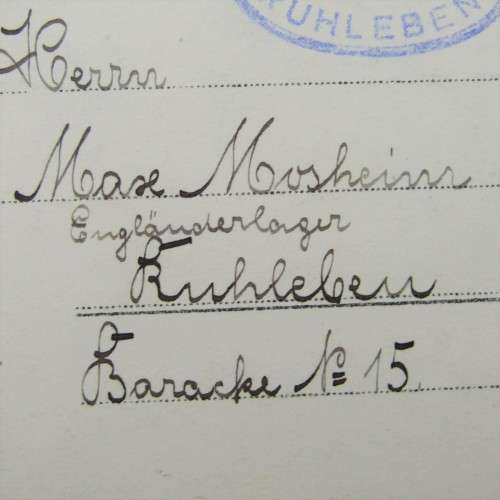 RUHLEBEN
Herrn
Max Mosheim
Engländerlager
Ruhleben
Baracke № 15.